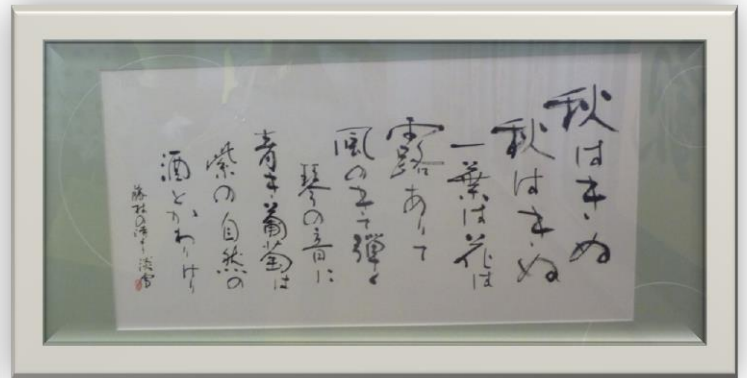 秋はきぬ
秋はきぬ
一葉は花は
露ありて
風のきて弾く
琴の音に
青き葡萄は
紫の自然の
酒とかわりけり
藤村の詩より